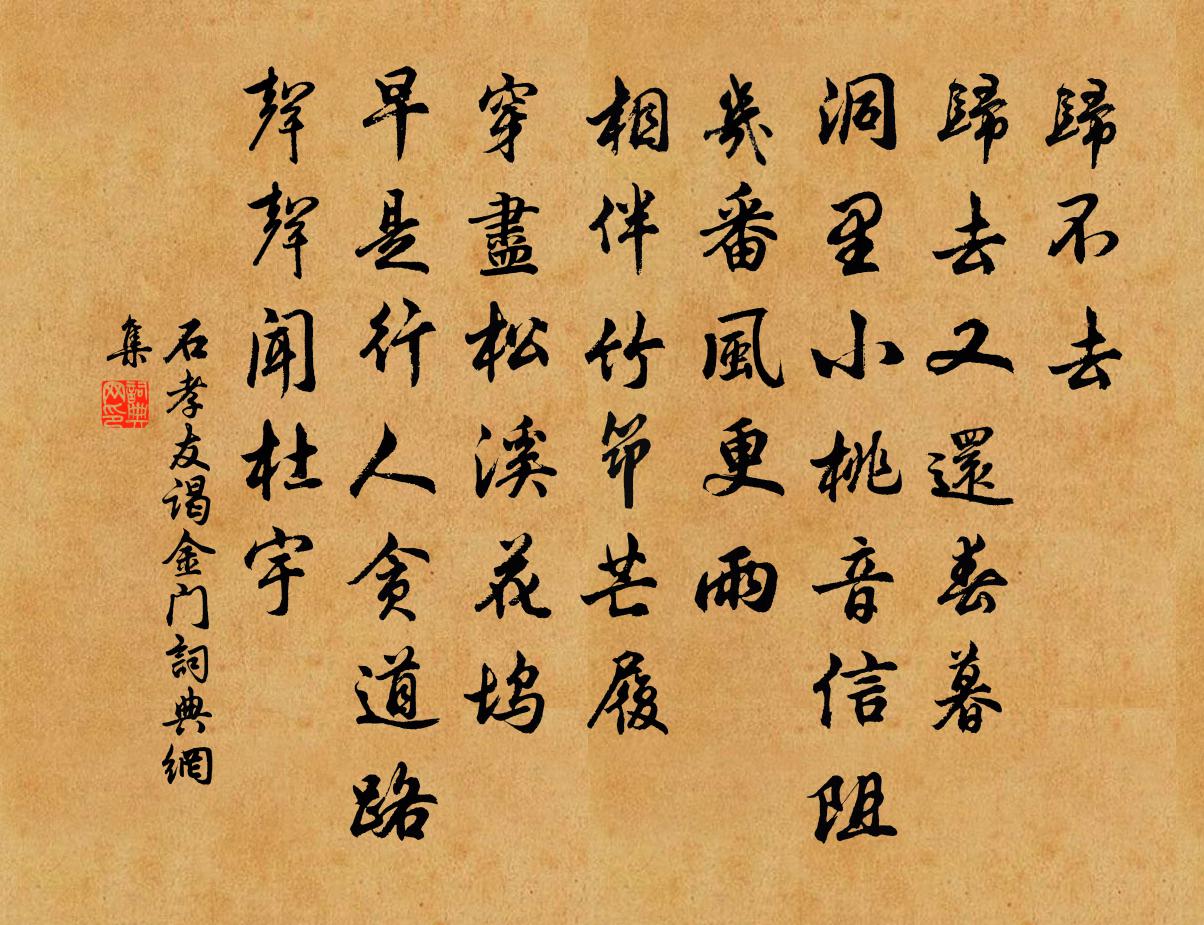 歸不去
歸去又還春暮
洞里小桃音信阻
幾番風更雨
相伴竹笻芒履
穿盡松溪花塢
早是行人貪道路
聲聲聞杜宇
石孝友谒金门詞典網
集
詞典網印